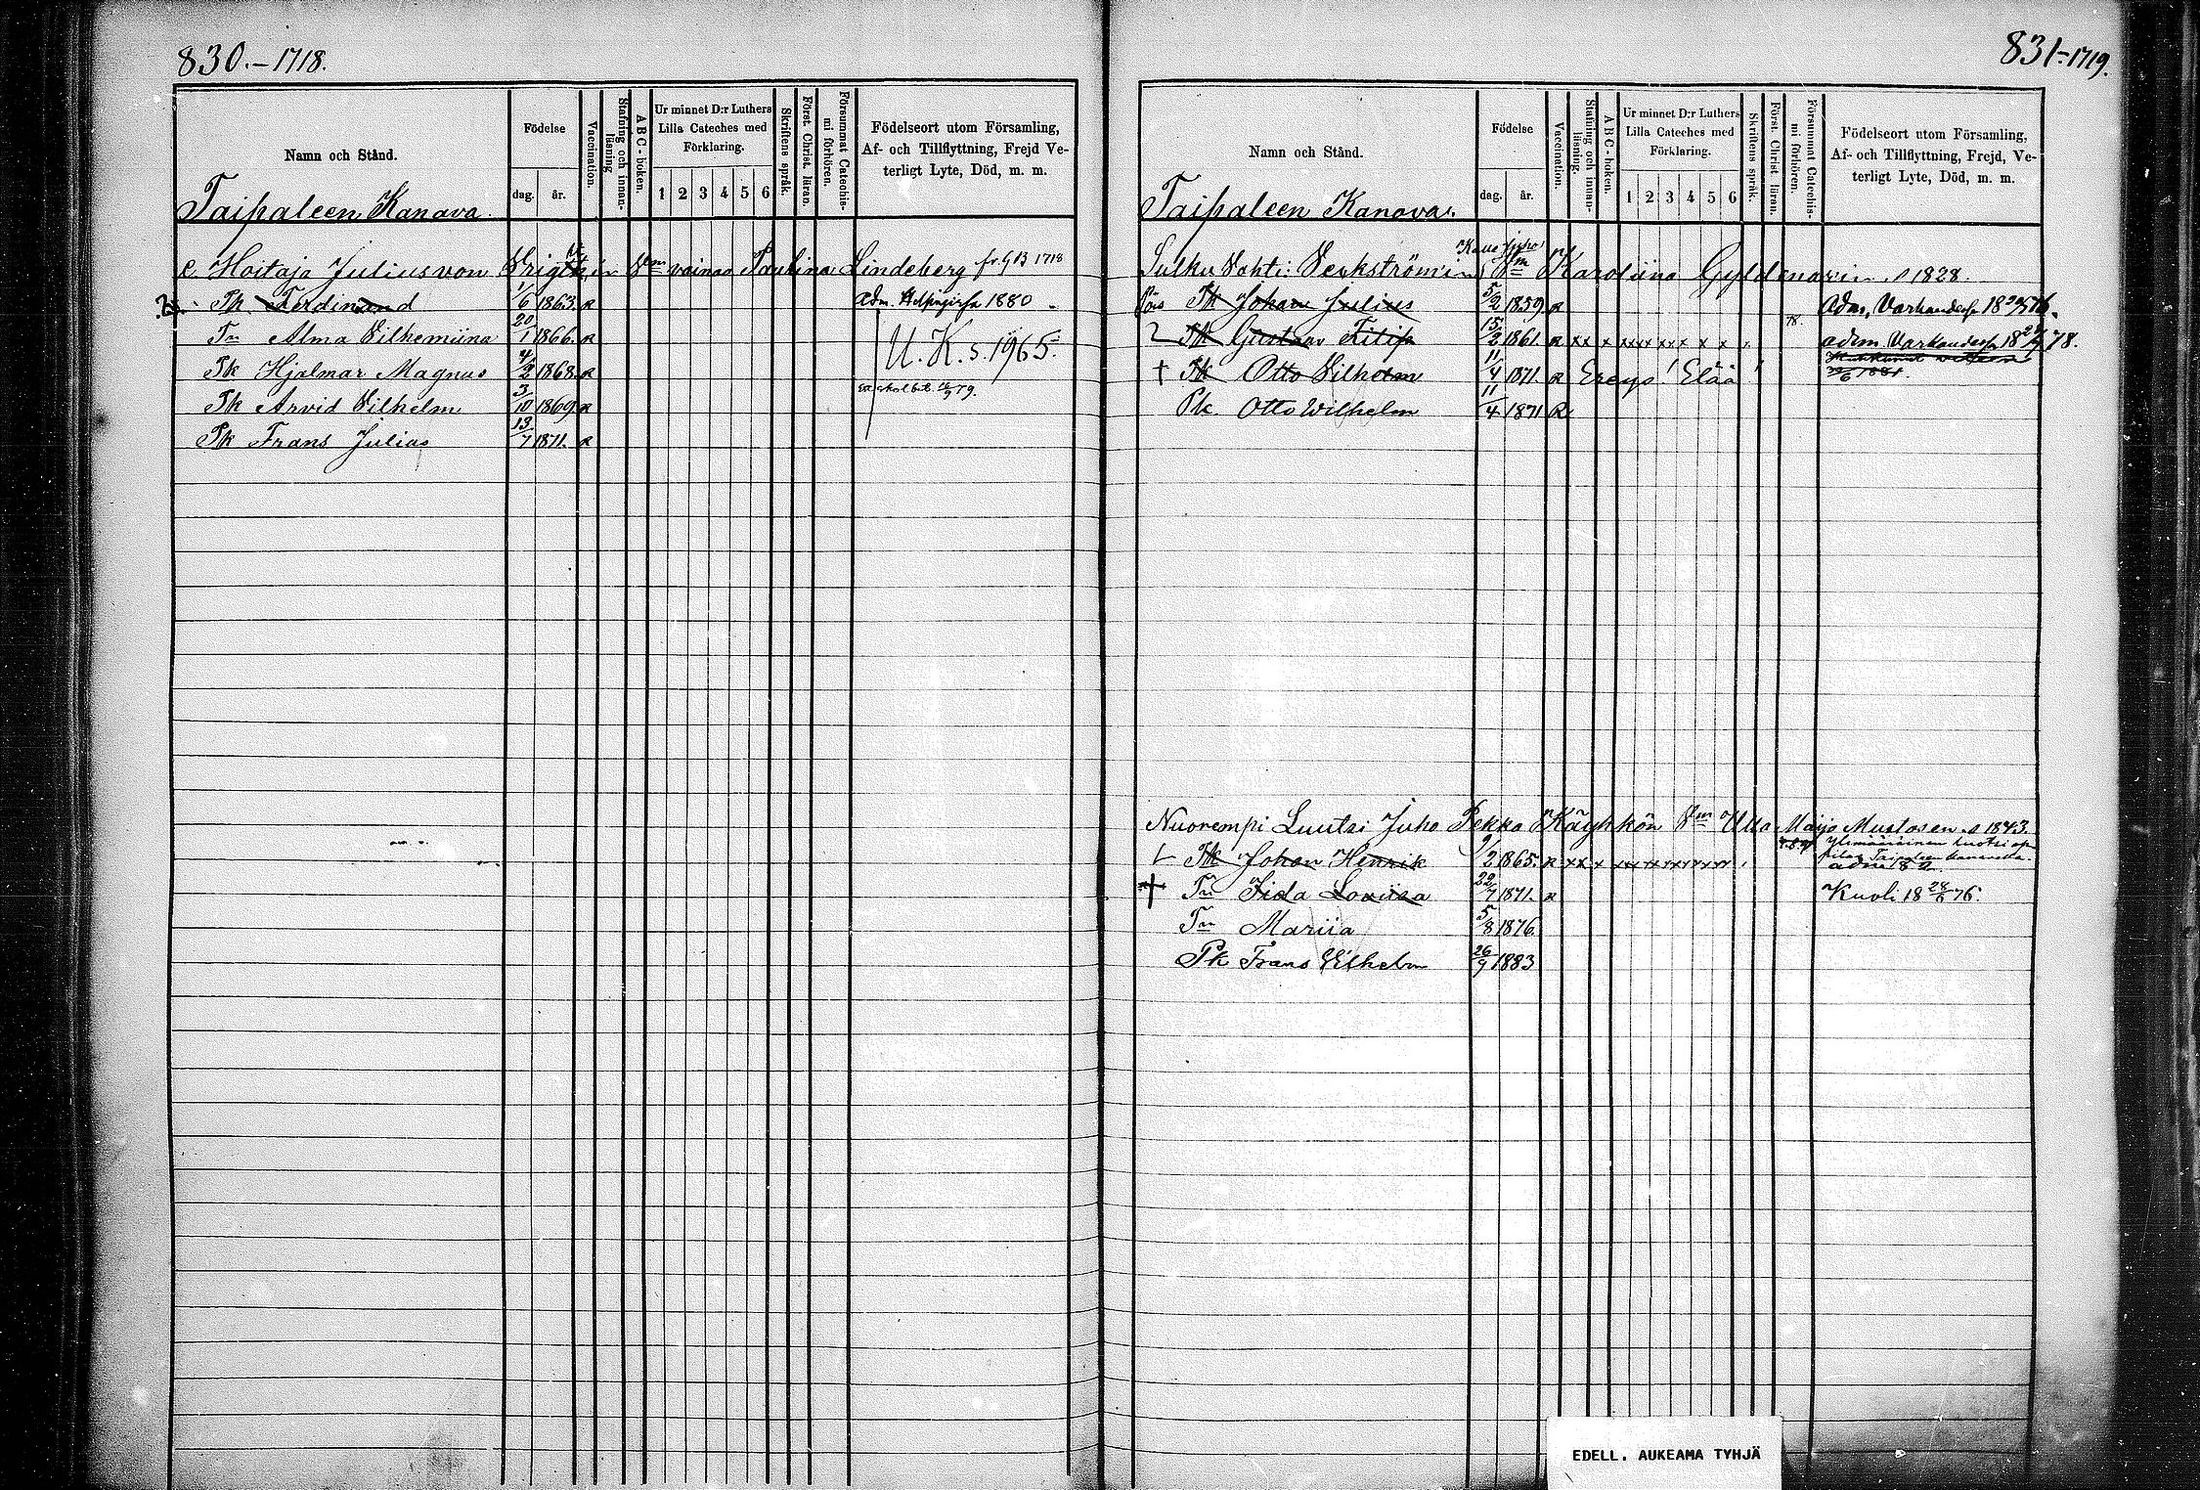 830.-1718.
Namn och Stånd.
Födelse
dag. år.
Vaccination.
Stafning och innan-
läsning
A B C-boken.
Ur minnet D:r Luthers
Lilla Cateches med
Förklaring.
1 2 3 4 5 6
Skriftens språk.
Först. Christ. läran.
Försummat Catechis-
mi förhören.
Födelseort utom Församling,
Af- och Tillflyttning, Frejd Ve-
terligt Lyte, Död, m. m.
Taipaleen Kanava.
e. Hoitaja Julius von vaimo Paulina Lindeberg fr. 913 1718
Pk Ferdinand 1/6 1863. R adm. Helsingissä 1880
Tr Alma Vilhemiina 20/1 1866. R U. K. s. 1965.
Pk Hjalmar Magnus 4/2 1868. R
Pk Arvid Vilhelm 3/10 1869 R
Pk Frans Julius 13/7 1871. R
831-1719.
Namn och Stånd.
Födelse
dag. år.
Vaccination.
Stafning och innan-
läsning.
A B C-boken.
Ur minnet D:r Luthers
Lilla Cateches med
Förklaring.
1 2 3 4 5 6
Skriftens språk.
Först. Christ läran.
Försummat Catechis-
mi förhören.
Födelseort utom Församling,
Af- och Tillflyttning, Frejd, Ve-
terligt Lyte, Död, m. m.
Taipaleen Kanava.
Sulku Vahti: Karoliina Gyldenarin s 1828.
Pk Johan Julius 5/2 1859. R
Pk Gustav Filip 15/2 1861. R xx x x x x x x x x 78. adm. Varkaudessa 78.
+ Pk Otto Vilhelm 11/4 1871. R Ereys! Elää!
Pk Otto Wilhelm 11/4 1871 R
Nuorempi Luutsi Juho Pekka Käyhkön Vm Ulla Maija Mustosen s 1843.
Pk Johan Henrik 9/2 1865. R xx x x x x x x x
+ Tr Fida Loviisa 22/7 1871. R Kuoli 18 28/6 76.
Tr Mariia 5/8 1876
Pk Frans Vilhelm 26/9 1883
EDELL. AUKEAMA TYHJÄ